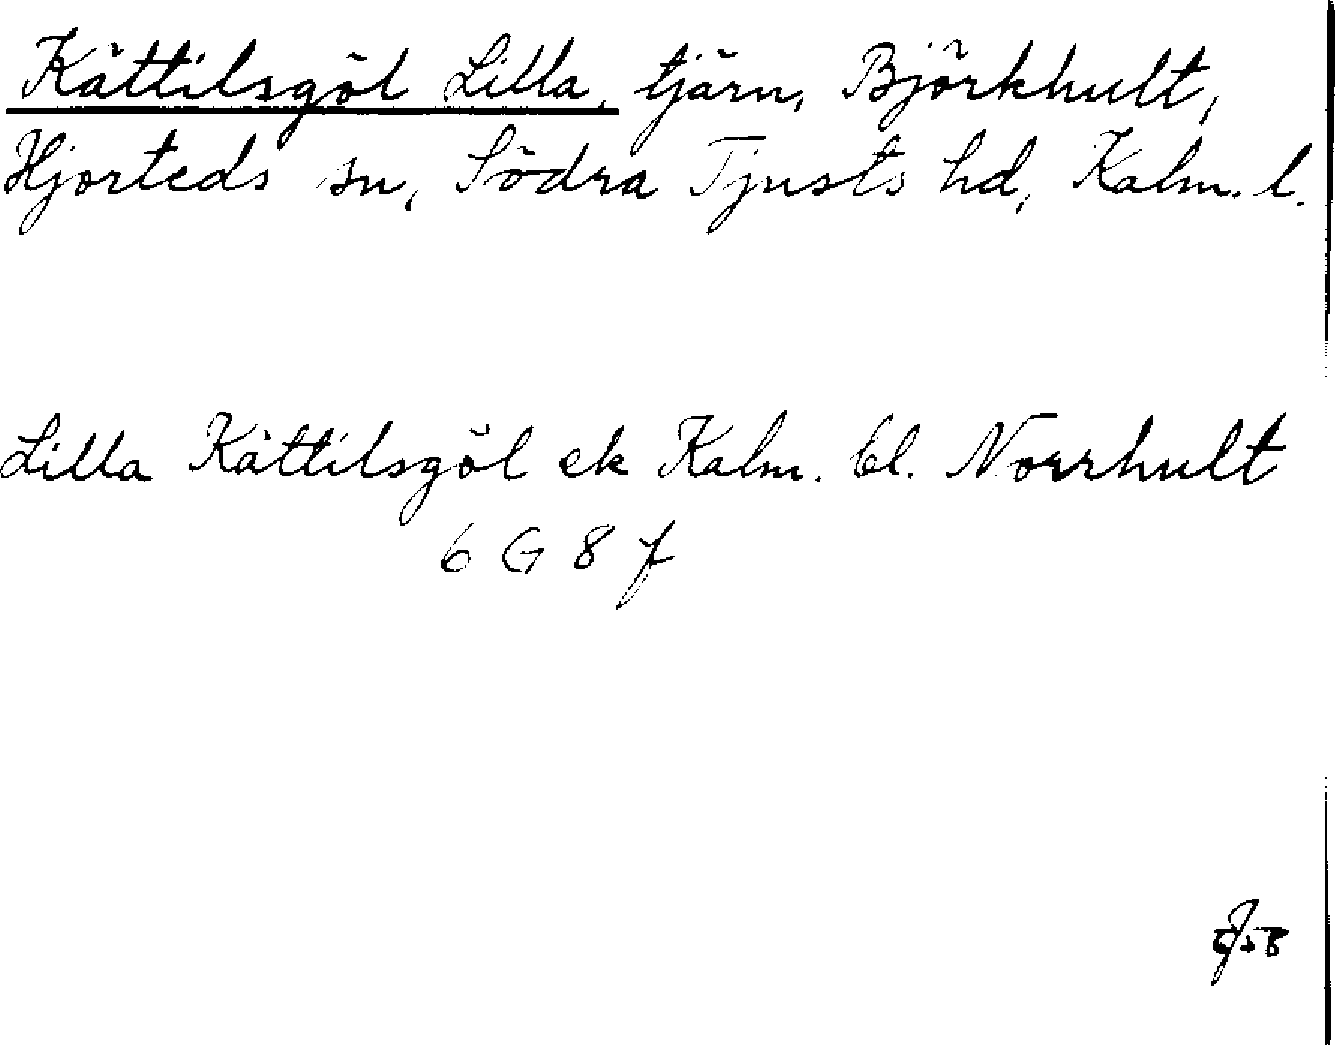 Kättilsgöl Lilla, tjärn, Björkhult,
Hjorteds sn, Södra Tjusts hd, Kalm. l.
Lilla Kättilsgöl ek Kalm. bl. Norrhult
6 G 8 f